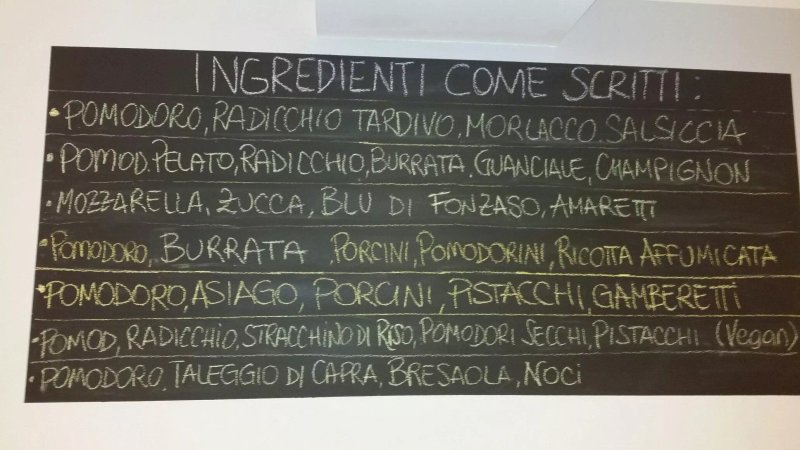 INGREDIENTI COME SCRITTI:
• POMODORO, RADICCHIO TARDIVO, MORLACCO. SALSICCIA
• POMOD. PELATO, RADICCHIO, BURRATA. GUANCIALE, CHAMPIGNON
• MOZZARELLA, ZUCCA, BLU DI FONZASO, AMARETTI
• POMODORO, BURRATA, PORCINI, POMODORINI, RICOTTA AFFUMICATA
• POMODORO, ASIAGO, PORCINI, PISTACCHI, GAMBERETTI
• POMOD, RADICCHIO, STRACCHINO DI RISO, POMODORI SECCHI, PISTACCHI (Vegan)
• POMODORO, TALEGGIO DI CAPRA, BRESAOLA, NOCI